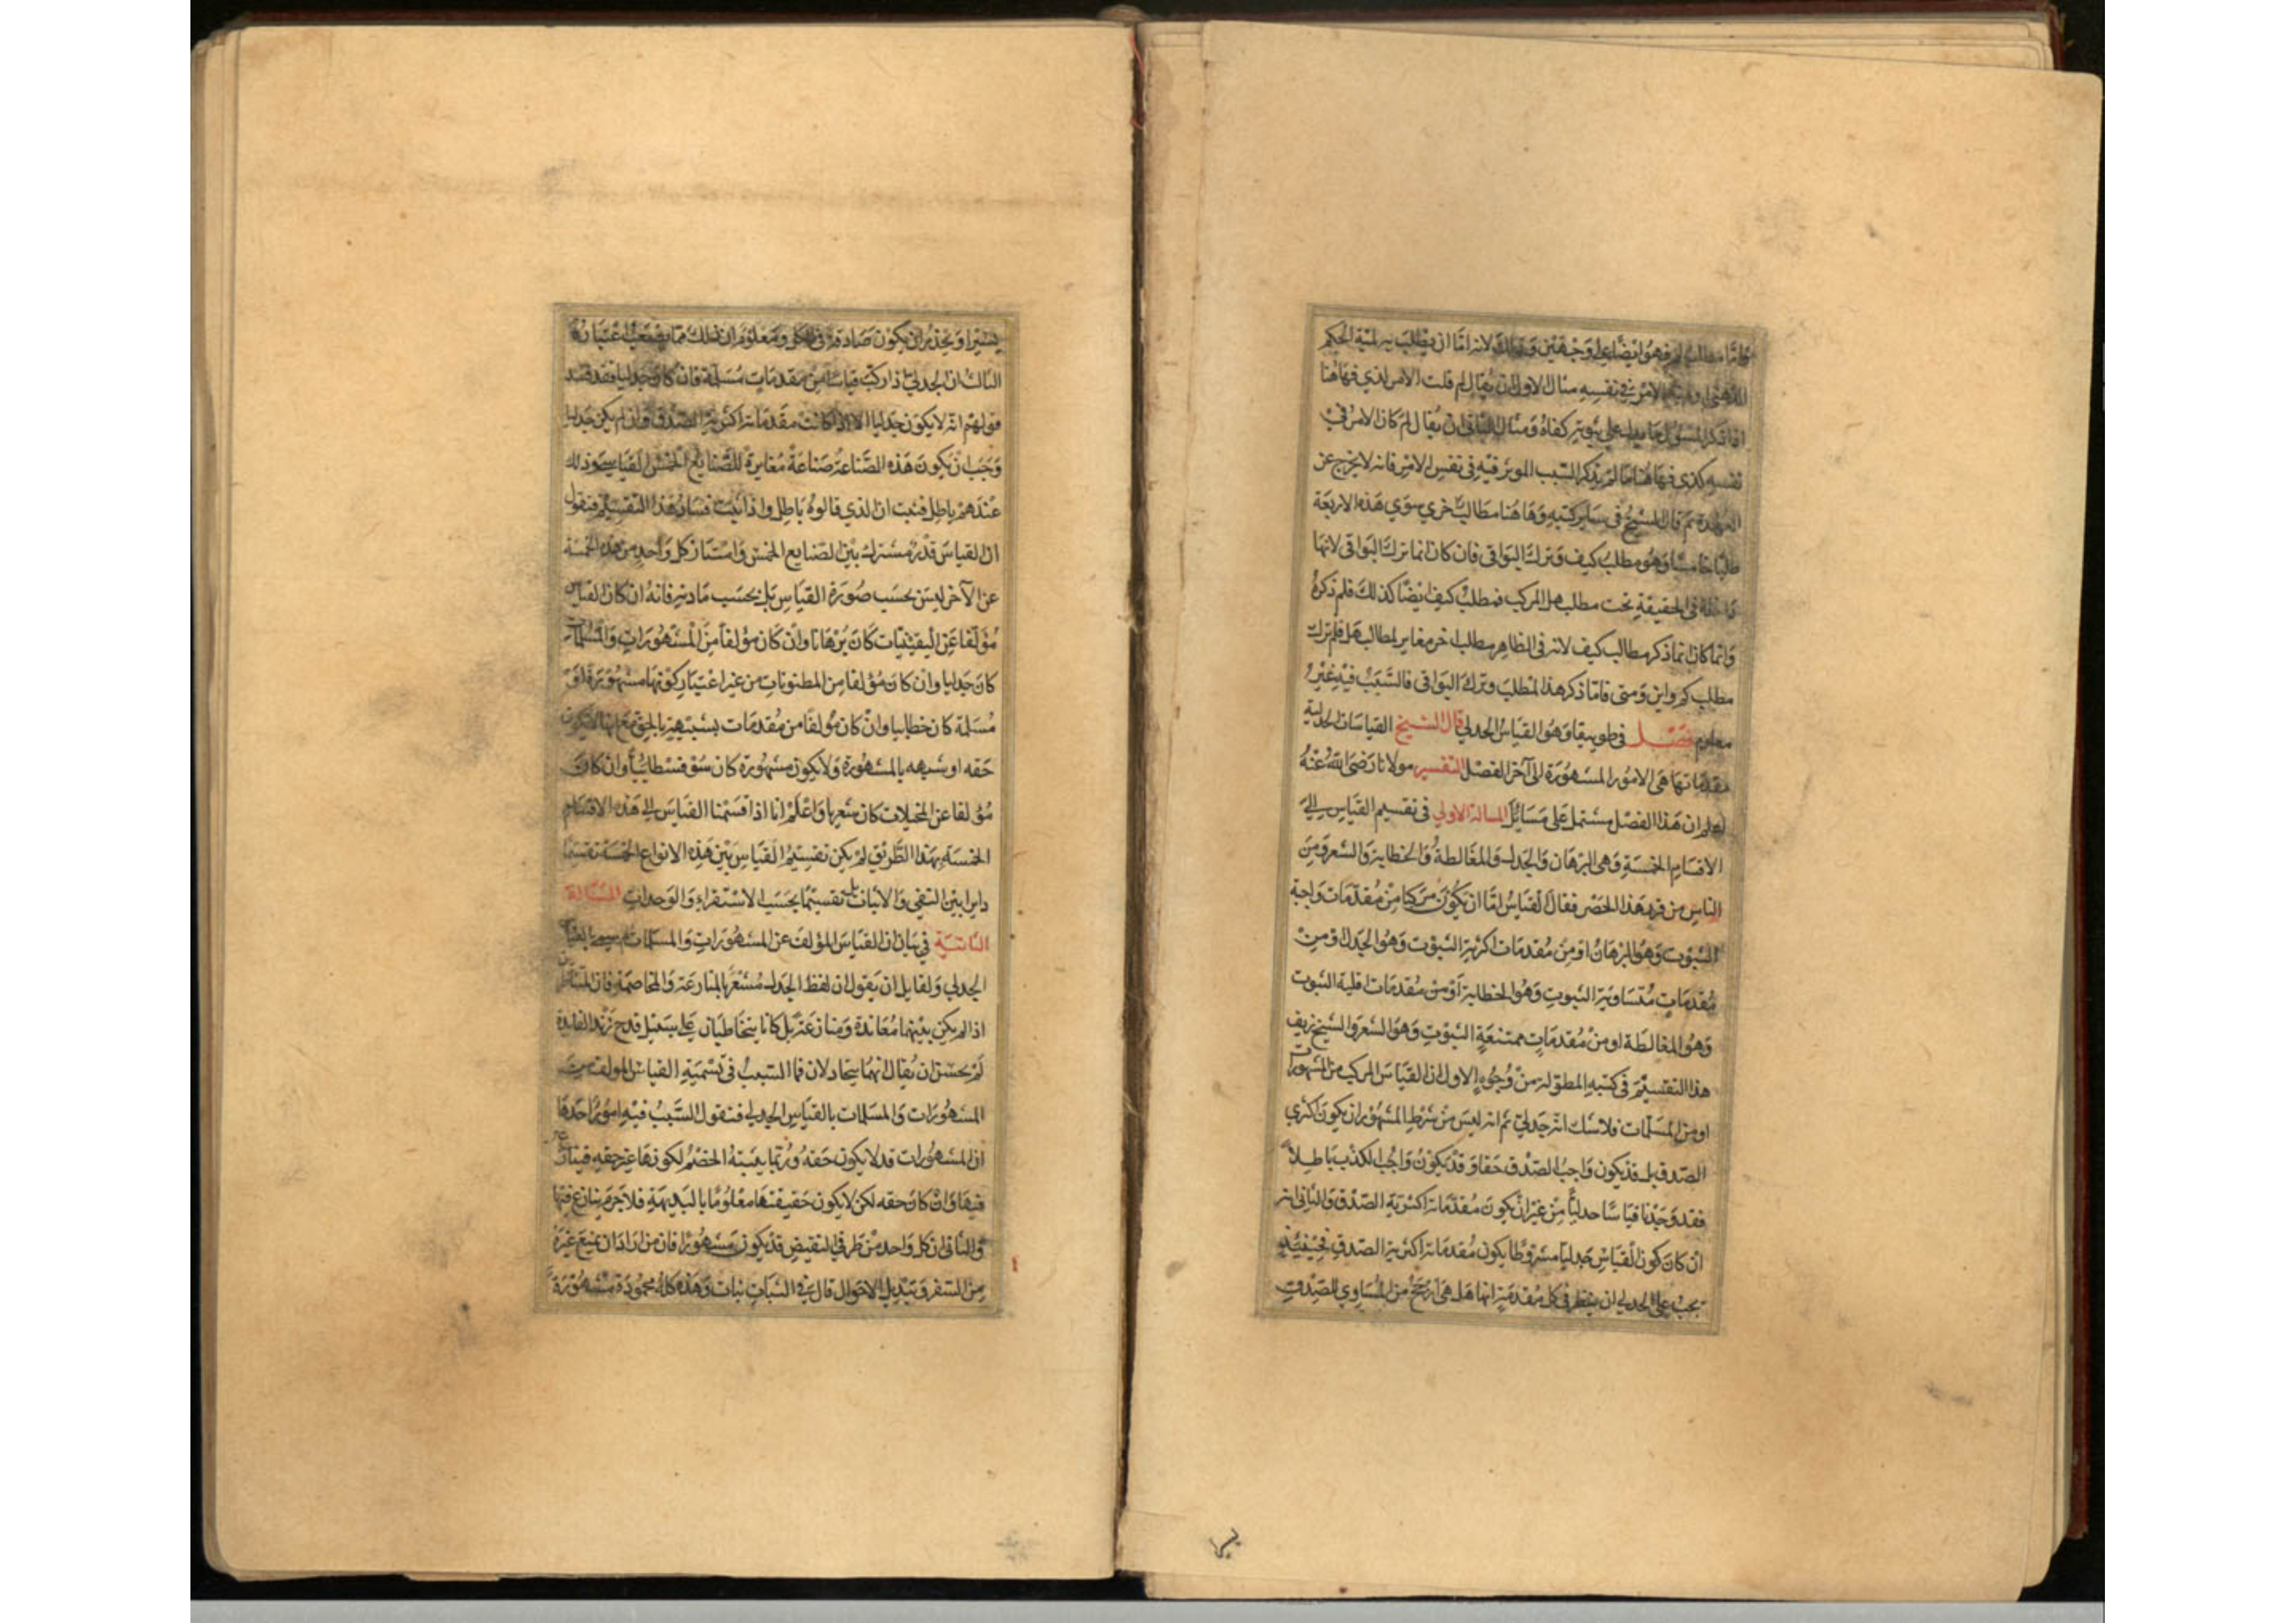 واما مطلب لم فهو ايضا علي وجهين وذلك لانه اما ان يطلب به لمية الحكم
الامر في نفسه مثال الاول ان يقال لم قلت الامر الذي فهاهنا
اذا ذكر المسؤل ما يدل علي ثبوته كفاه ومثال الثاني ان يقال لم كان الامر في
نفسه كذي فهاهنا ما لم يذكر السبب الموثر فيه في نفس الامر فانه لا يخرج عن
العهدة ثم قال الشيخ في ساير كتبه وهاهنا مطالب اخري سوي هذه الاربعة
خامسا وهو مطلب كيف وترك البواقي فان كان انما ترك البواقي لانها
داخلة في الحقيقة تحت مطلب هل المركب فمطلب كيف ايضا كذلك فلم ذكره
وانما كان انما ذكر مطالب كيف لانه في الظاهر مطلب اخر مغاير لمطالب هل فلم ترك
مطلب كم واين ومتي فاما ذكر هذا المطلب وترك البواقي فالسبب فيه غير
معلوم فصل في طوبيقا وهو القياس الجدلي قال الشيخ القياسات الجدلية
مقدماتها هي الامور المشهورة الي آخر الفصل التفسير مولانا رضي الله عنه
اعلم ان هذا الفصل مشتمل علي مسايل المسالة الاولي في تقسيم القياس الي
الاقسام الخمسة وهي البرهان والجدل والمغالطة والخطابة والشعر ومن
الناس من قرر هذا الحصر فقال القياس اما ان يكون مركبا من مقدمات واجبة
الثبوت وهو البرهان او من مقدمات اكثرية الثبوت وهو الجدل او من
مقدمات متساوية الثبوت وهو الخطابة او من مقدمات اقلية الثبوت
وهو المغالطة او من مقدمات ممتنعة الثبوت وهو الشعر والشيخ زيف
هذا التقسيم في كتبه المطولة من وجوه الاول ان القياس المركب من المشهورات
او من المسلمات فلا شك انه جدلي ثم انه ليس من شرط المشهور ان يكون اكثري
الصدق بل قد يكون واجب الصدق حقا وقد يكون واجب الكذب باطلا
فقد وجدنا قياسا جدليا من غير ان يكون مقدماته اكثرية الصدق والثاني انه
ان كان كون القياس جدليا مشروطا بكون مقدماته اكثرية الصدق فحينئذ
يجب علي الجدلي ان ينظر في كل مقدمة انها هل هي ارجح من المساوي الصدق
يسيرا ويحذر ان يكون صادقة في الكل ومعلوم ان ذلك مما يصعب اعتباره
الثالث ان الجدلي اذا ركب قياسا من مقدمات مسلمة فان كان جدليا فقد فسد
قولهم انه لا يكون جدليا الا اذا كانت مقدماته اكثرية الصدق وان لم يكن جدليا
وجب ان يكون هذه الصناعة صناعة مغايرة للصنايع الخمس القياسية وذلك
عندهم باطل فثبت ان الذي قالوه باطل واذا ثبت فساد هذا التقسيم فنقول
ان القياس قدر مشترك بين الصنايع الخمس وامتياز كل واحد من هذه الخمسة
عن الآخر ليس بحسب صورة القياس بل بحسب مادته فانه ان كان القياس
مؤلفا عن اليقينيات كان برهانا وان كان مؤلفا من المشهورات والمسلمات
كان جدليا وان كان مؤلفا من المظنونات من غير اعتبار كونها مشهورة او
مسلمة كان خطابيا وان كان مؤلفا من مقدمات بشبيهة بالحق مع انها لا يكون
حقه او شبيهه بالمشهورة ولا يكون مشهورة كان سوفسطائيا وان كان
مؤلفا عن المخيلات كان شعريا واعلم انا اذا قسمنا القياس الي هذه الاقسام
الخمسة بهذا الطريق لم يكن تقسيم القياس بين هذه الانواع الخمسة تقسيما
دايرا بين النفي والاثبات بل تقسيما بحسب الاستقراء والوجدان المسالة
الثانية في بيان ان القياس المؤلف عن المشهورات والمسلمات لم سمي بالقياس
الجدلي ولقايل ان يقول ان لفظ الجدل مشعر بالمنازعة والمخاصمة فان المتناظرين
اذا لم يكن بينهما معاندة ومنازعة بل كانا يتخاطبان علي سبيل قدح زند الفايدة
لم يحسن ان يقال انهما يتجادلان فما السبب في تسمية القياس المولف من
المشهورات والمسلمات بالقياس الجدلي فنقول السبب فيه امور احدها
ان المشهورات قد لا يكون حقه وربما يعينه الخصم لكونها غير حقه فينازع
فيها وان كان حقه لكن لا يكون حقيقتها معلوما بالبديهة فلا جرم ينازع فيها
والثاني ان كل واحد من طرفي النقيض قد يكون مشهورا فان من اراد ان يمنع غيره
من السفر وتبديل الاحوال قال في الثبات نبات وهذه كلمة محمودة مشهورة